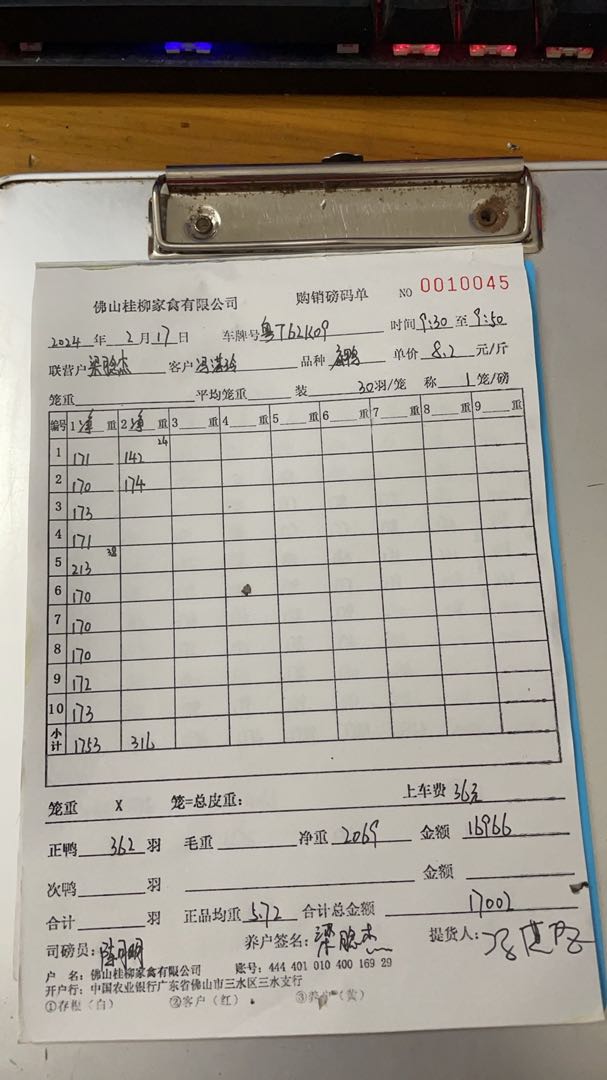 佛山桂柳家禽有限公司 购销磅码单 NO 0010045
2024 年 2 月 17 日 车牌号 粤T62K09 时间 9:30 至 9:50
联营户 梁聪杰 客户 品种 单价 8.2 元/斤
笼重 平均笼重 装 30 羽/笼 称 1 笼/磅
编号 1 净 重 2 净 重 3 重 4 重 5 重 6 重 7 重 8 重 9 重
1 171 142 24
2 170 174
3 173
4 171
5 213 38
6 170
7 170
8 170
9 172
10 173
小计 1753 316
笼重 X 笼=总皮重: 上车费 36元
正鸭 362 羽 毛重 净重 2069 金额 16966
次鸭 羽 金额
合计 羽 正品均重 5.72 合计总金额 17002
司磅员: 养户签名: 梁聪杰 提货人:
户 名: 佛山桂柳家禽有限公司 账号: 444 401 010 400 169 29
开户行: 中国农业银行广东省佛山市三水区三水支行
①存根（白） ②客户（红） ③养户（黄）